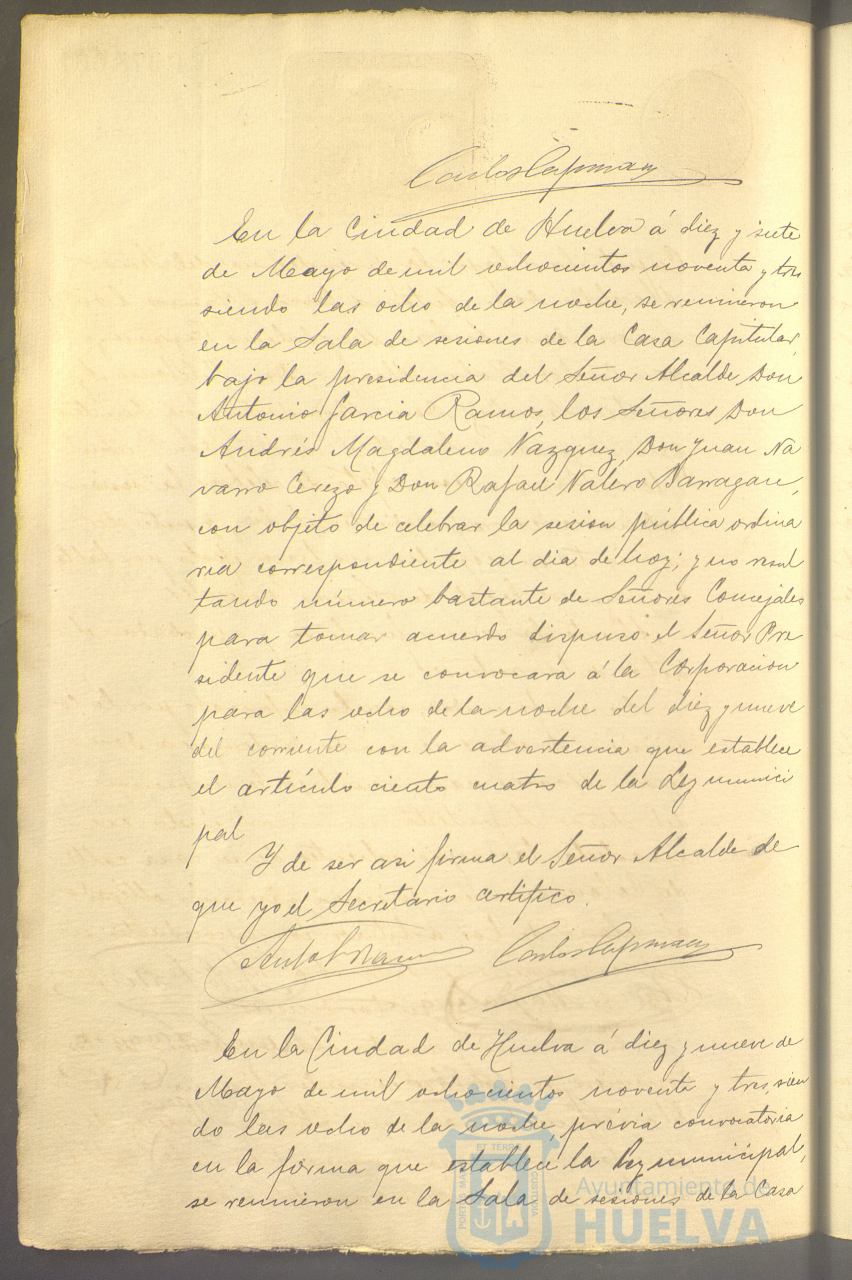 Carlos Capman
En la Ciudad de Huelva á diez y siete
de Mayo de mil ochocientos noventa y tres
siendo las ocho de la noche, se reunieron
en la Sala de sesiones de la Casa Capitular,
bajo la presidencia del Señor Alcalde Don
Antonio Garcia Ramos, los Señores Don
Andrés Magdaleno Vazquez, Don Juan Na
varro Cerezo y Don Rafael Valero Barragan,
con objeto de celebrar la sesion pública ordina
ria correspondiente al dia de hoy; y no resul
tando número bastante de Señores Concejales
para tomar acuerdo dispuso el Señor Pre
sidente que se convocara á la Corporacion
para las ocho de la noche del diez y nueve
del corriente con la advertencia que establece
el artículo ciento cuatro de la Ley munici
pal
Y de ser asi firma el Señor Alcalde de
que yo el Secretario certifico.
Carlos Capman
En la Ciudad de Huelva á diez y nueve de
Mayo de mil ochocientos noventa y tres, sien
do las ocho de la noche, prévia convocatoria
en la forma que establece la Ley municipal,
se reunieron en la Sala de sesiones de la Casa
Ayuntamiento de
HUELVA